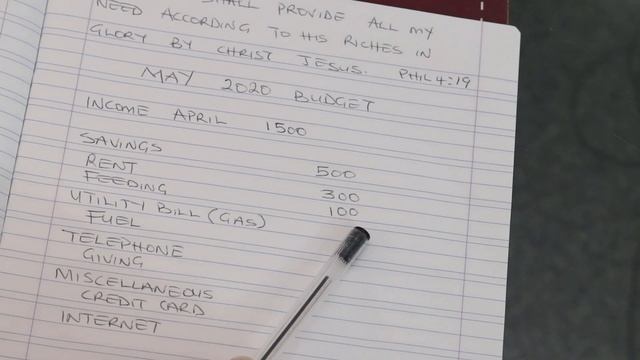 SHALL PROVIDE ALL MY
NEED ACCORDING TO HIS RICHES IN
GLORY BY CHRIST JESUS. PHIL 4:19
MAY 2020 BUDGET
INCOME APRIL 1500
SAVINGS
RENT 500
FEEDING 300
UTILITY BILL (GAS) 100
FUEL
TELEPHONE
GIVING
MISCELLANEOUS
CREDIT CARD
INTERNET